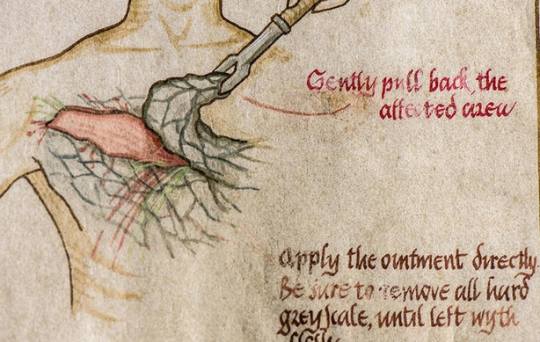 Gently pull back the
affected area
Apply the ointment directly.
Be sure to remove all hard
greyscale, until left wyth